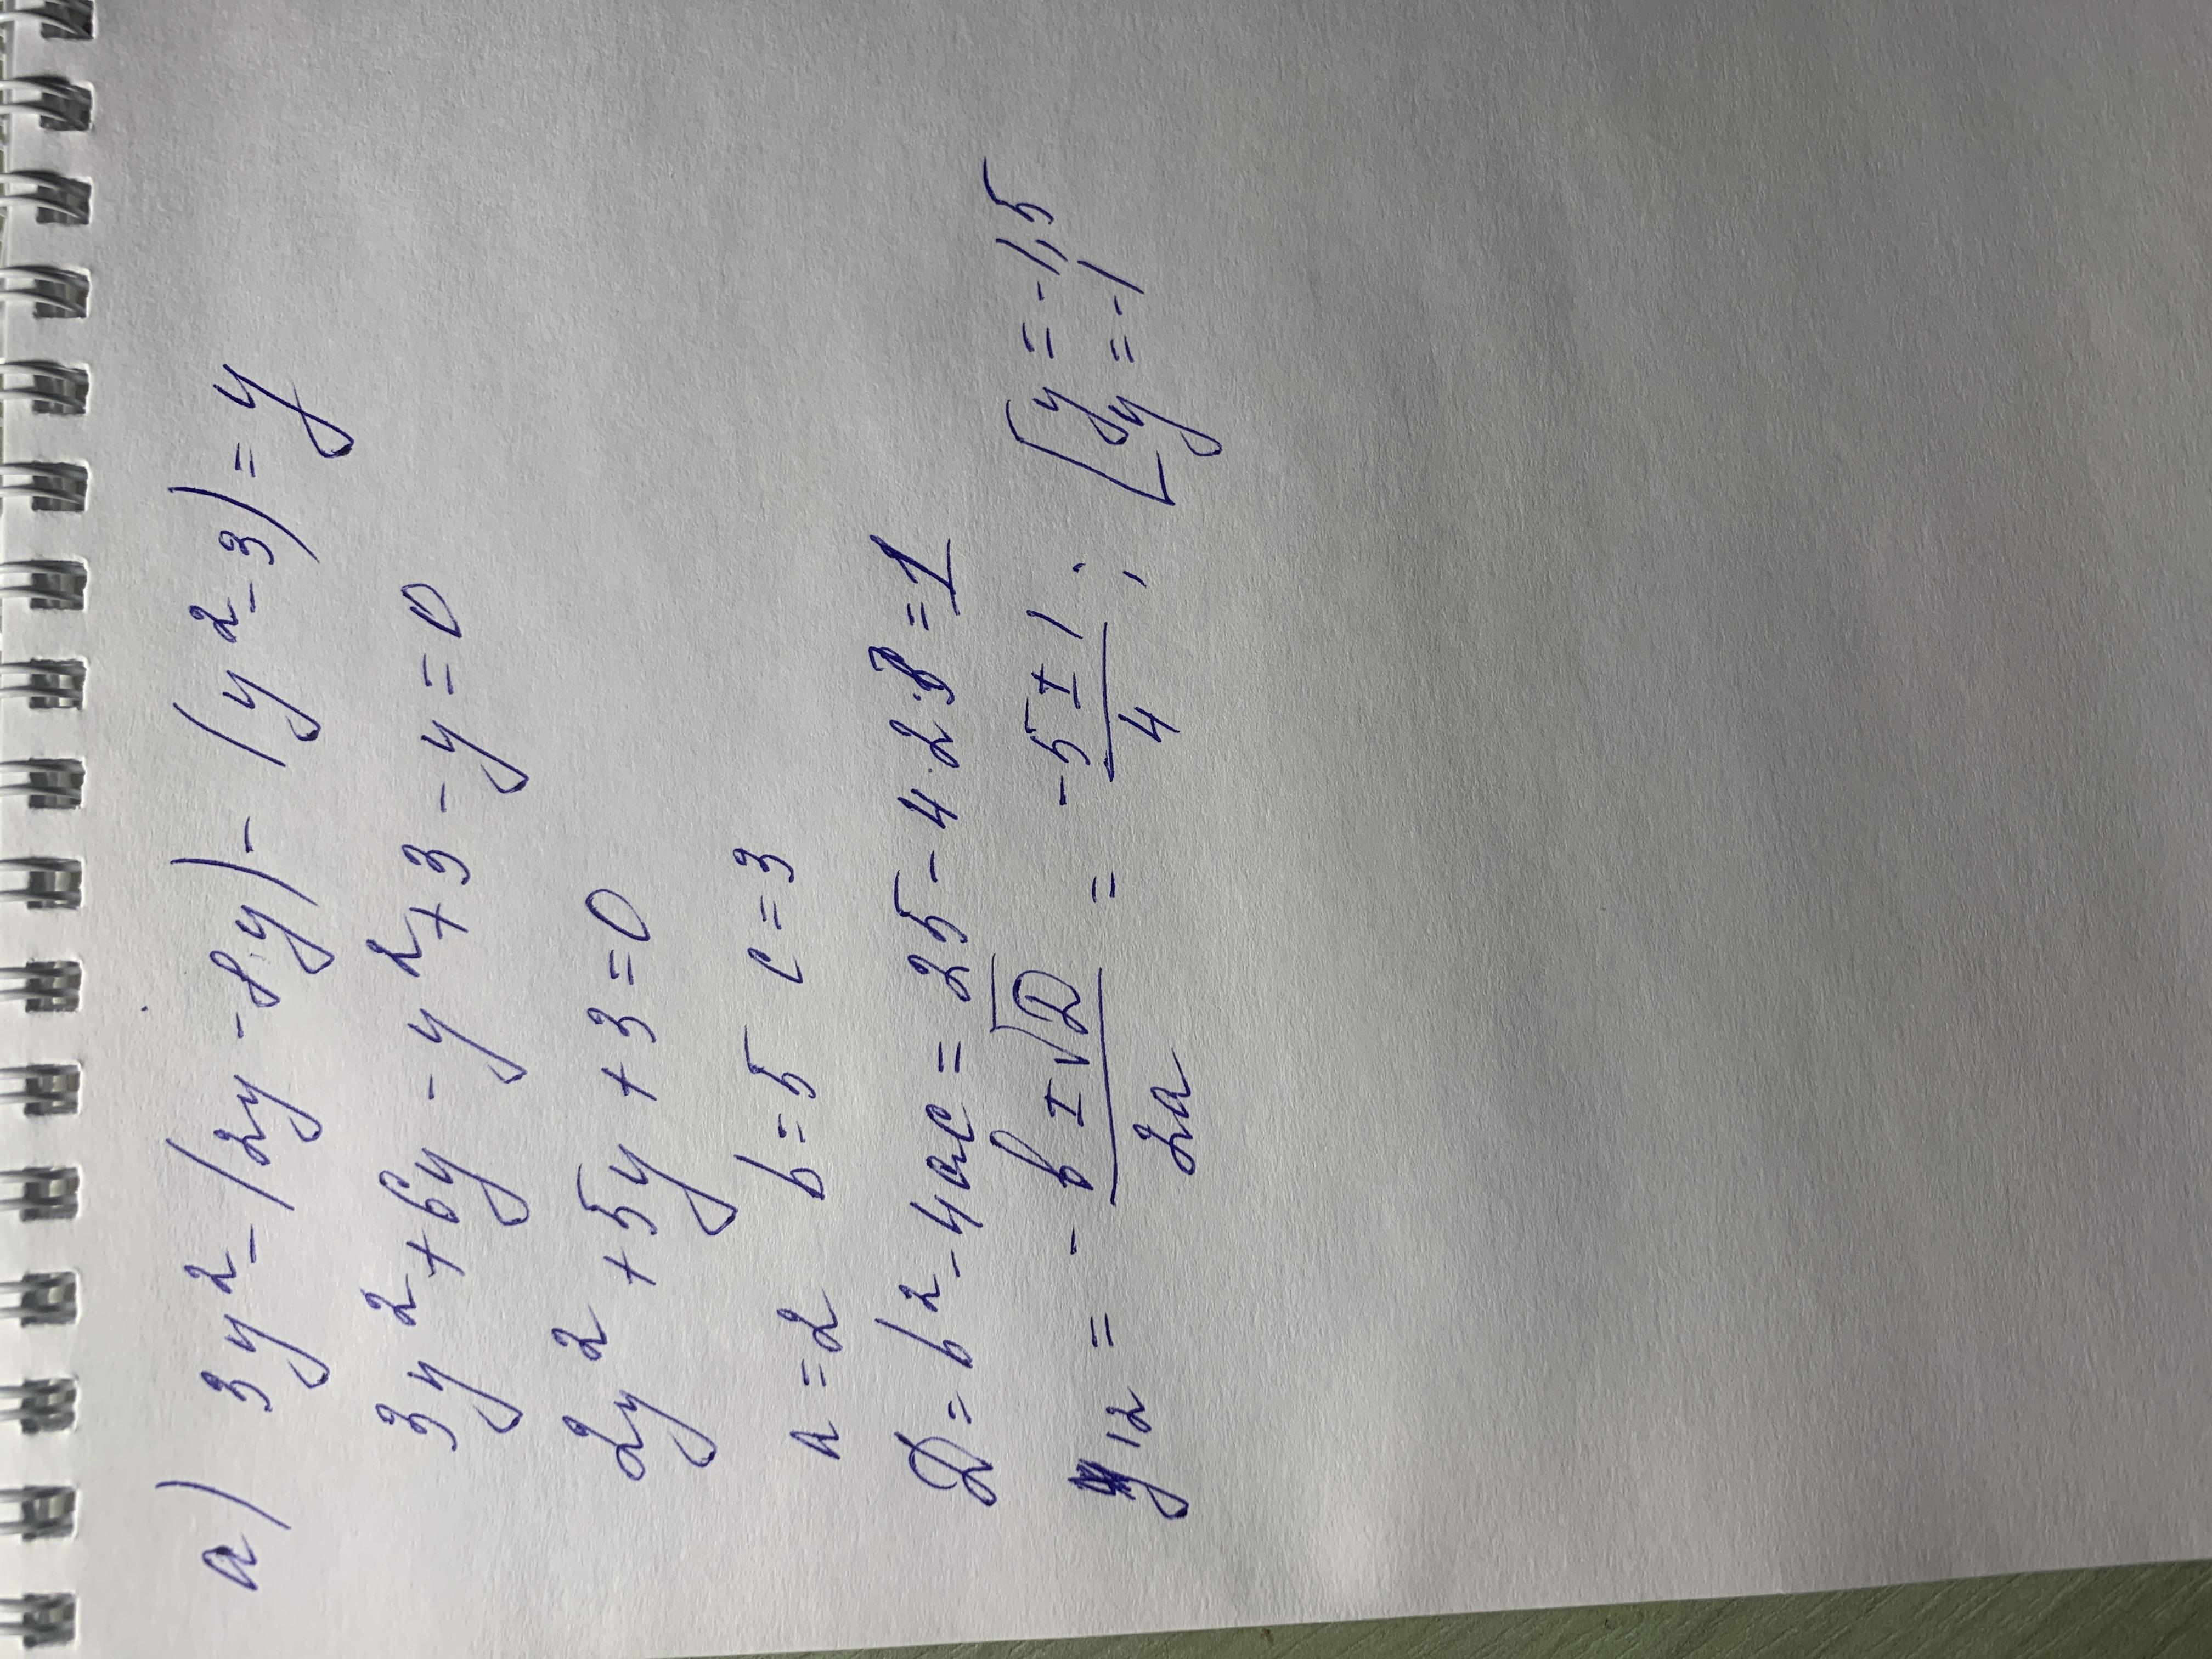 a) 3y² - (2y - 8y) - (y² - 3) = y
3y² + 6y - y² + 3 - y = 0
2y² + 5y + 3 = 0
a = 2 b = 5 c = 3
D = b² - 4ac = 25 - 4·2·3 = 1
y₁₂ = (-b ± √D)/2a = (-5 ± 1)/4 ; [y = -1,5
y = -1